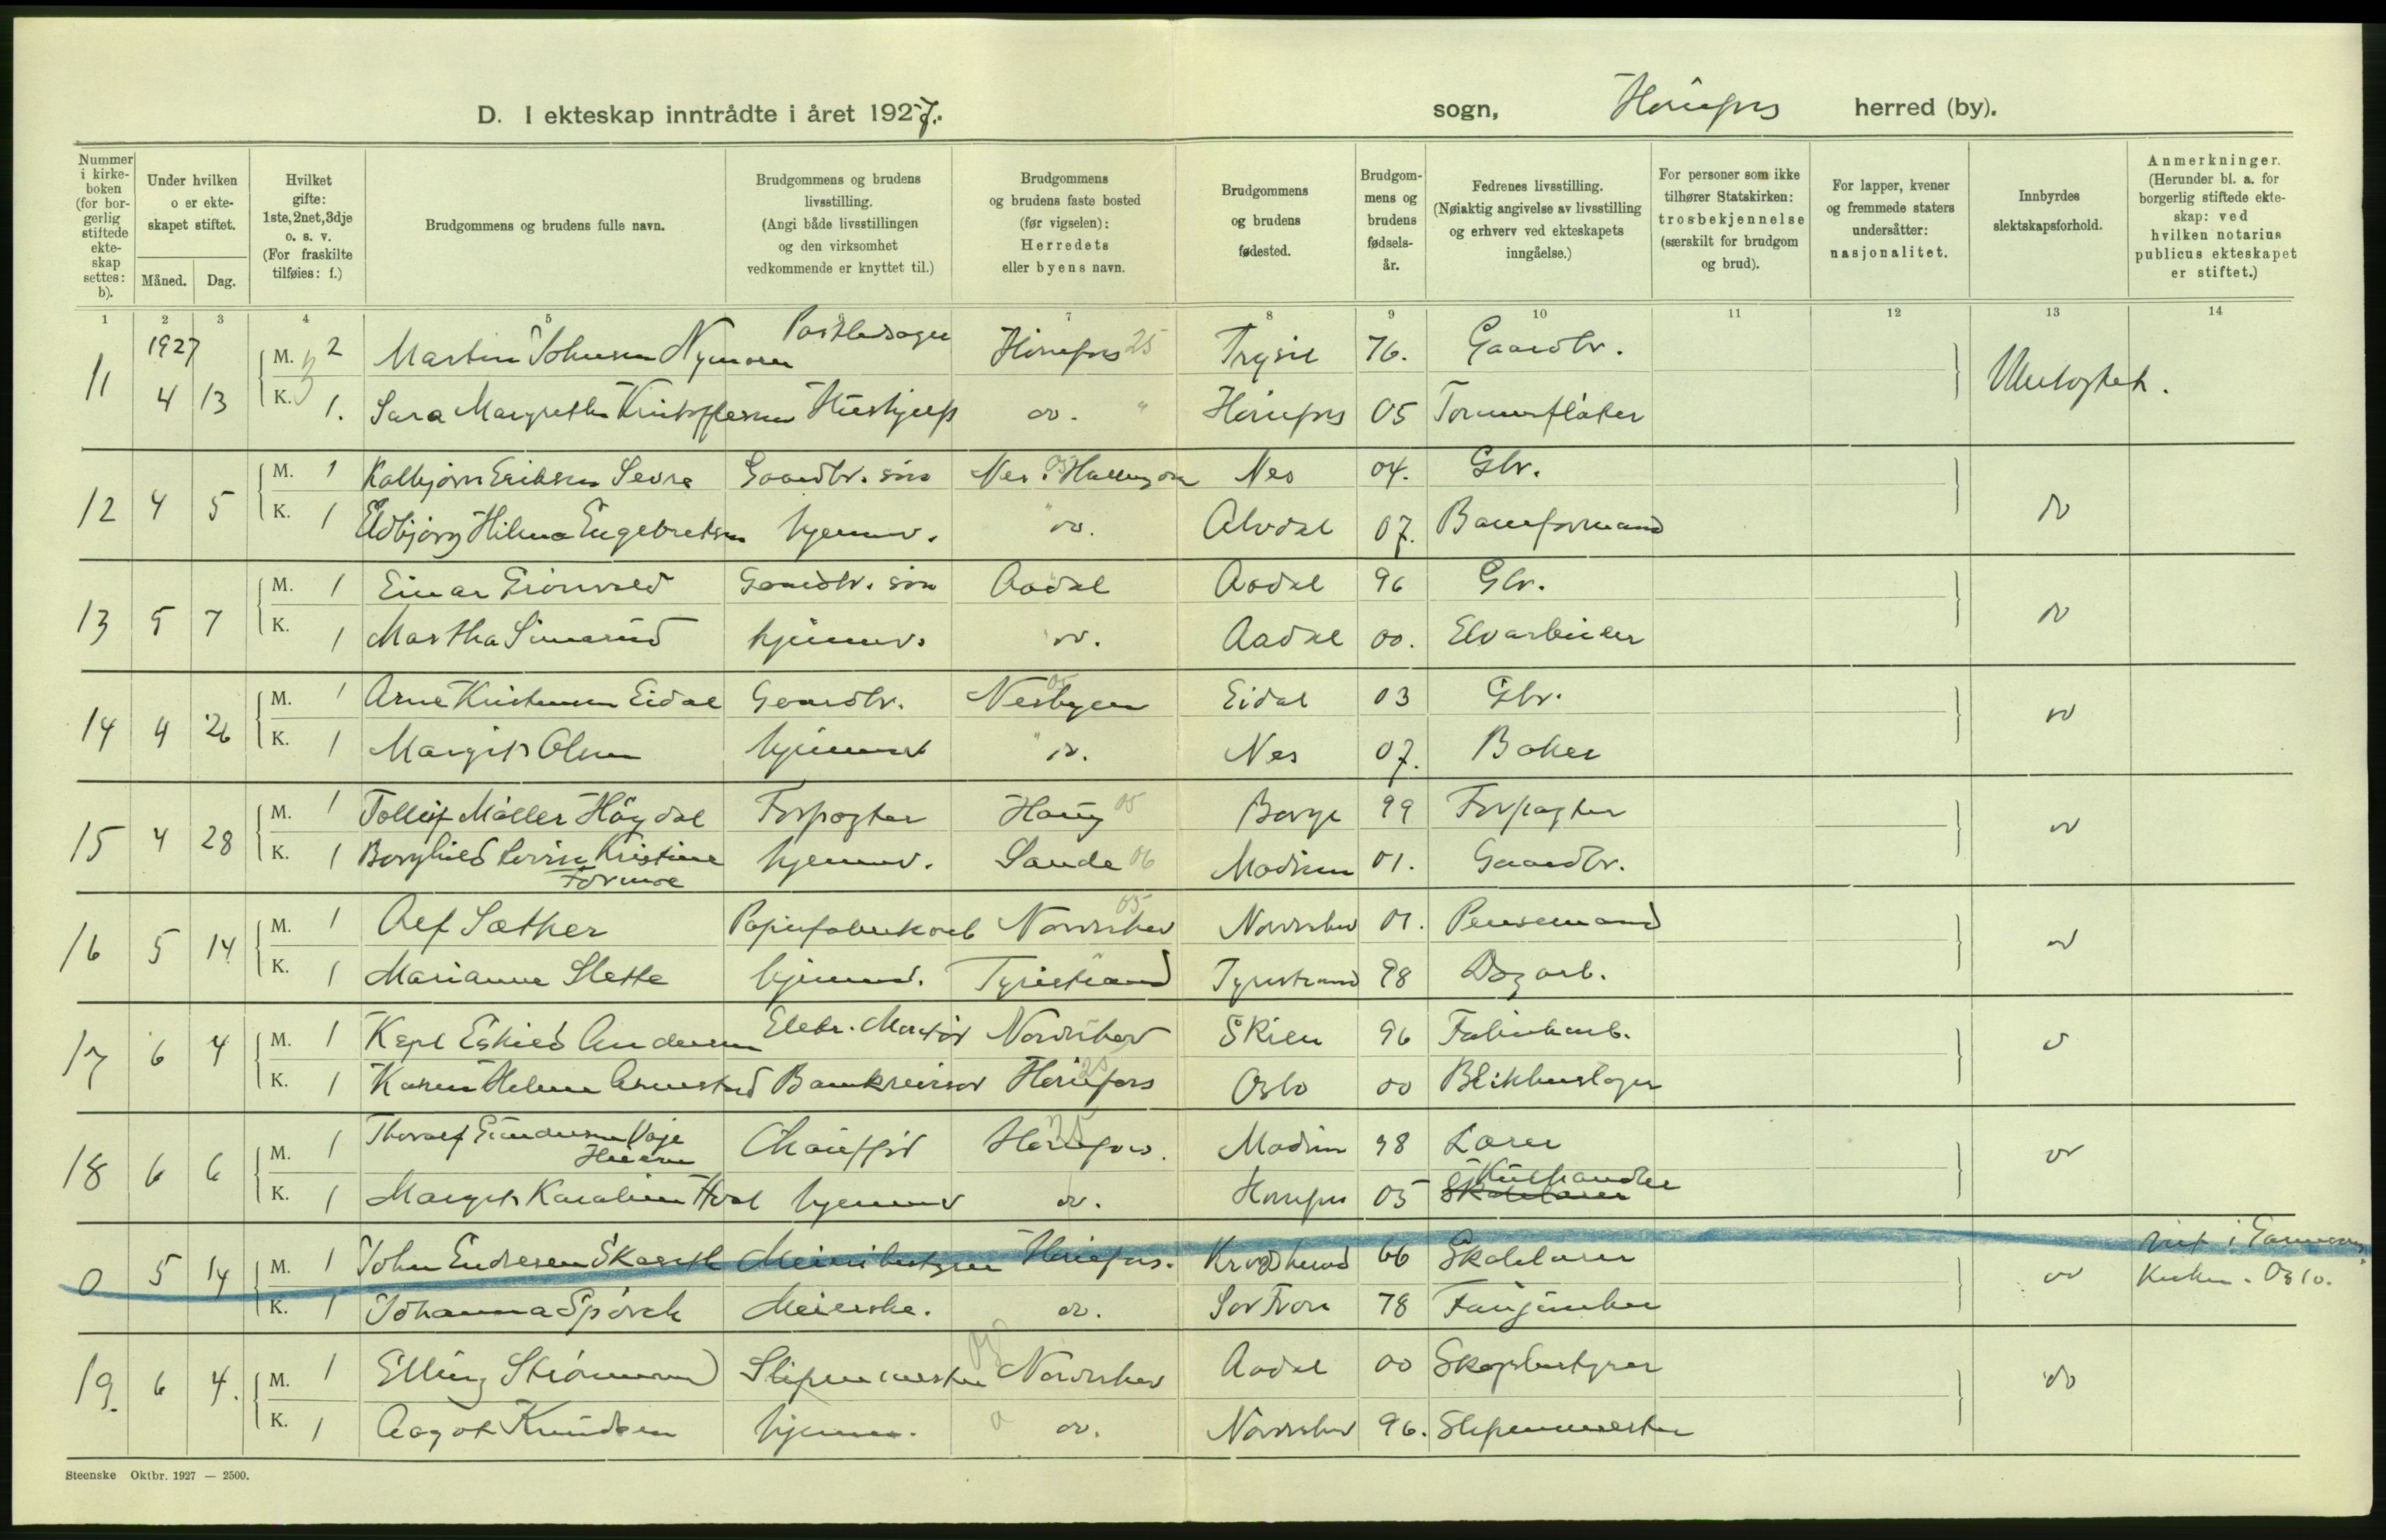 D. I ekteskap inntrådte i året 1927.
sogn, Hönefos herred (by).
Nummer i kirkeboken (for borgerlig stiftede ekteskap settes: b).
Under hvilken o er ekteskapet stiftet.
Måned. Dag.
Hvilket gifte: 1ste, 2net, 3dje o. s. v. (For fraskilte tilføies: f.)
Brudgommens og brudens fulle navn.
Brudgommens og brudens livsstilling. (Angi både livsstillingen og den virksomhet vedkommende er knyttet til.)
Brudgommens og brudens faste bosted (før vigselen): Herredets eller byens navn.
Brudgommens og brudens fødested.
Brudgommens og brudens fødselsår.
Fedrenes livsstilling. (Nøiaktig angivelse av livsstilling og erhverv ved ekteskapets inngåelse.)
For personer som ikke tilhører Statskirken: trosbekjennelse (særskilt for brudgom og brud).
For lapper, kvener og fremmede staters undersåtter: nasjonalitet.
Innbyrdes slektskapsforhold.
Anmerkninger. (Herunder bl. a. for borgerlig stiftede ekteskap: ved hvilken notarius publicus ekteskapet er stiftet.)
1 2 3 4 5 7 8 9 10 11 12 13 14
1927
11 4 13 M. 2 Martin Johnsen Hönefos 25 Trysil 76. Gaardbr. Ubeslegtet.
K. 1. Sara Margrethe Kristoffersen Hushjelp do. " Hönefos 05 Tømmerfløter
12 4 5 M. 1 Kolbjørn Eriksen Sevre Gaardbr. søn Nes i Hallingdal 05 Nes 04. Gbr. do
K. 1 Eldbjörg Hilma Engebretsen hjemmev. " do. Alvdal 07. Baneformand
13 5 7 M. 1 Einar Grönvold Gaardbr. søn Aadal Aadal 96 Gbr. do
K. 1 Martha Simarud hjemmev. do. Aadal 00. Elvarbeider
14 4 26 M. 1 Arne Kristensen Eidal Gaardbr. Nesbyen 05 Eidal 03 Gbr. do
K. 1 Margit Olsen hjemmev " do. Nes 07. Baker
15 4 28 M. 1 Tolleif Møller Högdal Forpagter Haug 05 Borge 99 Forpagter do
K. 1 Borghild Kristine Formoe hjemmev. Sande 06 Modum 01. Gaardbr.
16 5 14 M. 1 Alf Sæther Papirfabrikarb Norderhov 05 Norderhov 01. Pensemand do
K. 1 Marianne Slette hjemmev. Tyristrand Tyristrand 98 Dagarb.
17 6 4 M. 1 Karl Eskild Andersen Elektr. Montør Norderhov Skien 96 Fabrikarb. do
K. 1 Karen Helene Bankrevisor Hönefoss 25 Oslo 00 Blikkenslager
18 6 6 M. 1 Thoralf Gundersen Chauffør Hönefos. 25 Modum 98 Lærer do
K. 1 Margit Karoline Hval hjemmev do. Hönefos 05 Skolelærer Kulhandler
0 5 14 M. 1 John Endresen Meieribestyrer Hönefos. Krødsherad 66 Skolelærer do Viet i Kirken. Oslo.
K. 1 Johanna Spörck Meierske. do. Sør Fron 78 Fanejunker
19. 6 4. M. 1 Elling Strömmen Slipemester Norderhov Aadal 00 Skogsbestyrer do
K. 1 Aagot Knudsen hjemme. do. Norderhov 96. Slipemester
Steenske Oktbr. 1927 — 2500.